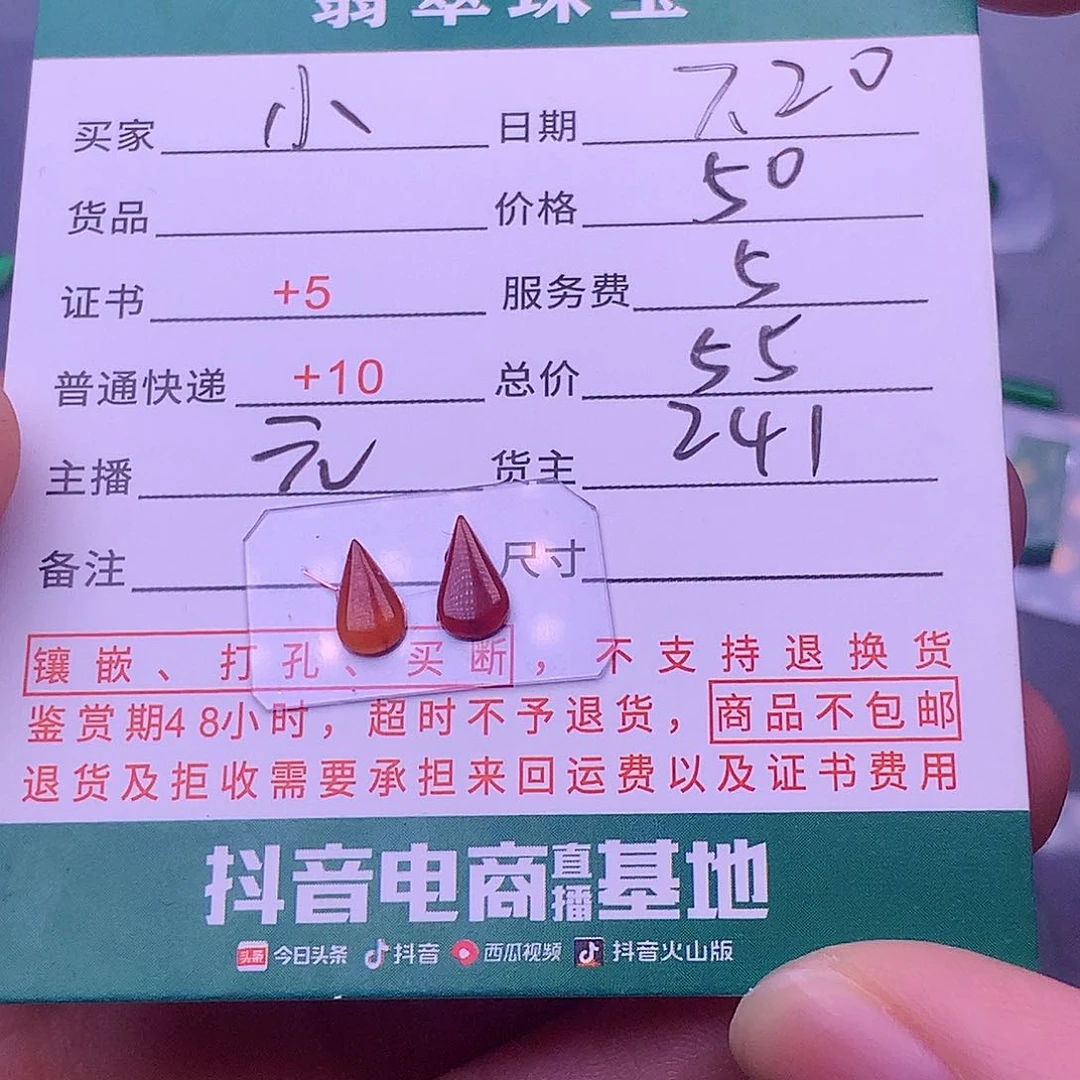 翡翠珠宝
买家 小 日期 7.20
货品 价格 50
证书 +5 服务费 5
普通快递 +10 总价 55
主播 元 货主 241
备注 尺寸
镶嵌、打孔、买断，不支持退换货
鉴赏期48小时，超时不予退货，商品不包邮
退货及拒收需要承担来回运费以及证书费用
抖音电商直播基地
头条 今日头条 抖音 西瓜视频 抖音火山版